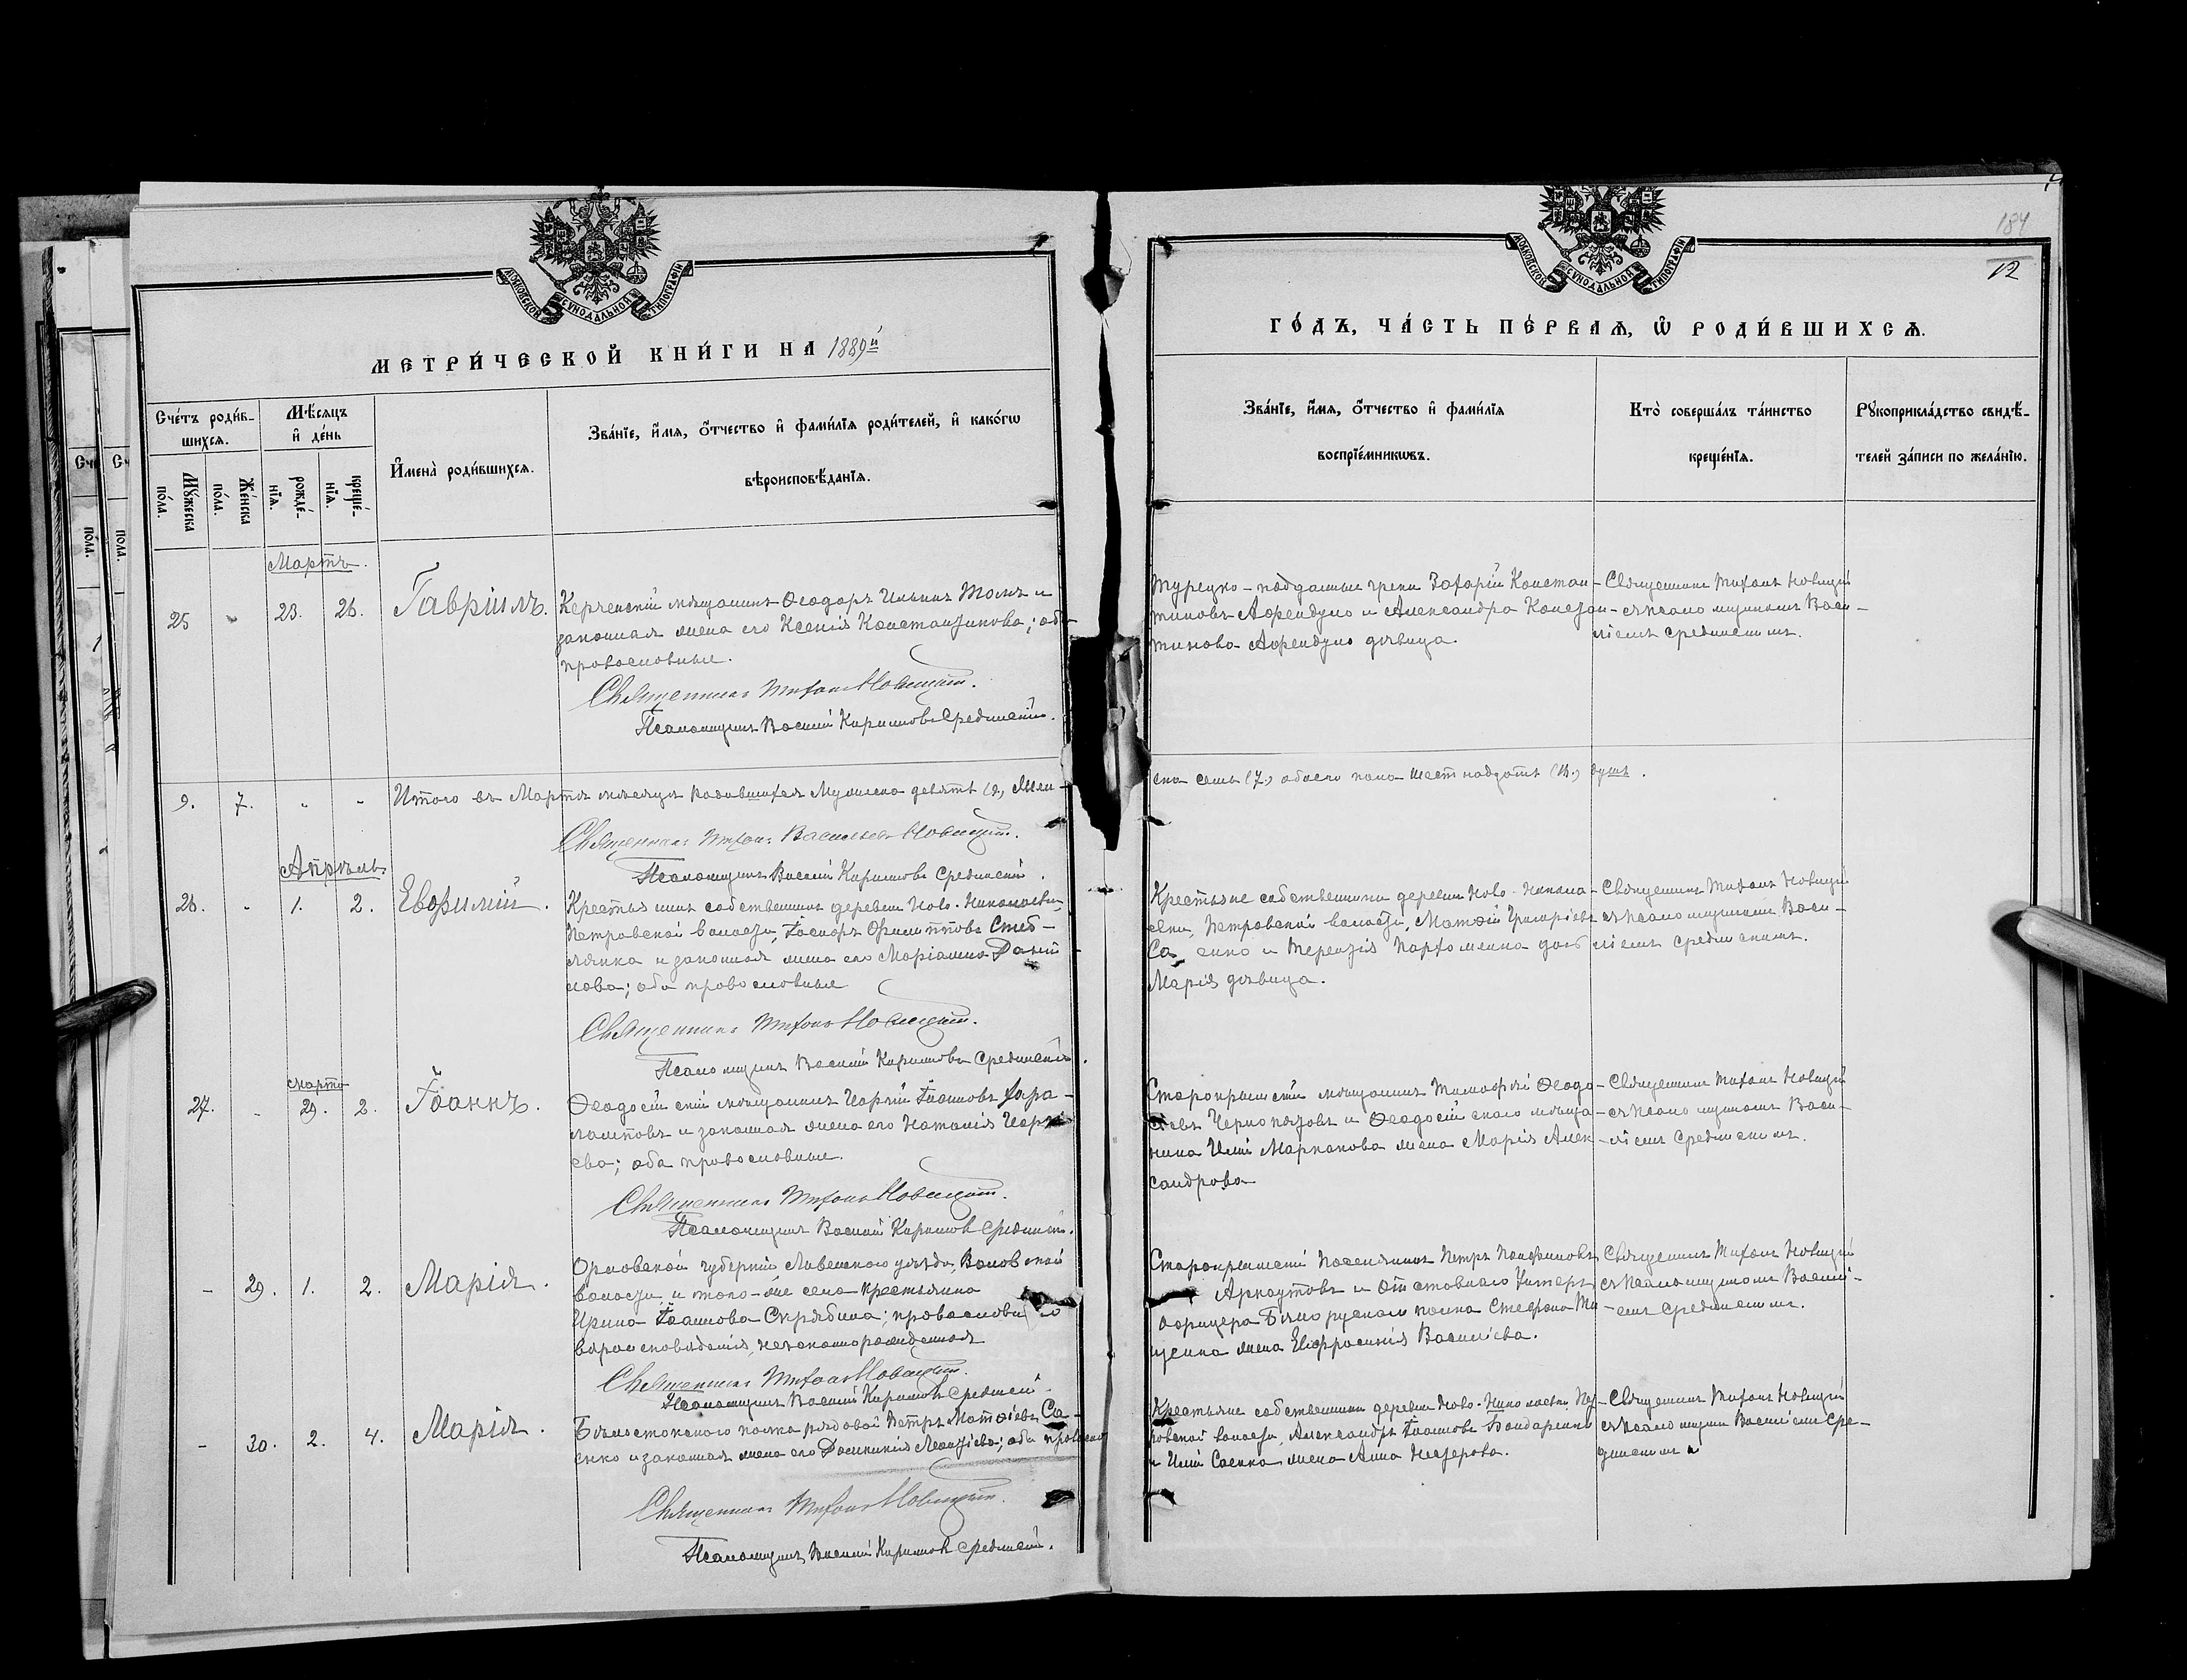 184
12
МОСКОВСКОЙ СѴНОДАЛЬНОЙ ТИПОГРАФІИ
МОСКОВСКОЙ СѴНОДАЛЬНОЙ ТИПОГРАФІИ
МЕТРИ́ЧЕСКОЙ КНИ́ГИ НА 1889й
ГО́ДЪ, ЧА́СТЬ ПЕ́РВАѦ, Ѡ҆ РОДИ́ВШИХСѦ.
Сче́тъ роди́в-
шихсѧ.
Мѣ́сѧцъ
и҆ де́нь
Мꙋ́жеска
по́ла.
Же́нска
по́ла.
рожде́-
нїѧ.
креще́-
нїѧ.
И҆мена̀ роди́вшихсѧ.
Зва́нїе, и҆́мѧ, ѻ҆́тчество и҆ фами́лїѧ роди́телей, и҆ како́гѡ
вѣроисповѣ́данїѧ.
Зва́нїе, и҆́мѧ, ѻ҆́тчество и҆ фами́лїѧ
воспрїе́мникѡвъ.
Кто̀ соверша́лъ та́инство
креще́нїѧ.
Рꙋкоприкла́дство свидѣ́-
телей за́писи по жела́нїю.
Мартъ.
25 " 23. 26. Гавріилъ.
Керченскій мѣщанинъ Ѳеодоръ Ильинъ и
законная жена его Ксенія Константинова; оба
православные.
Священникъ Тихонъ Новицкій.
Псаломщикъ Василій Кирилловъ Срединскій.
Турецко-подданные греки Захарій Констан-
тиновъ Афендуло и Александра Констан-
тинова Афендуло дѣвица.
Священникъ Тихонъ Новицкій
съ псаломщикомъ Васи-
ліемъ Срединскимъ.
9. 7. " " Итого въ Мартѣ мѣсяцѣ родившихся Мужеска девять (9) Жен-
ска семь (7) обоего пола шестнадцать (16.) душъ.
Священникъ Тихонъ Васильевъ Новицкій.
Псаломщикъ Василій Кирилловъ Срединскій.
Апрѣль.
26. " 1. 2. Евфимій.
Крестьянинъ собственникъ деревни Ново-Николаевки,
Петровской волости, Филипповъ Стеб-
лянка и законная жена его Маріанна Даній
лова; оба православные
Священникъ Тихонъ Новицкій.
Псаломщикъ Василій Кирилловъ Срединскій.
Крестьяне собственники деревни Ново-Никола-
евки, Петровской волости, Матѳій Григорьевъ
Са енко и Терентія Пархоменка дочь
Марія дѣвица.
Священникъ Тихонъ Новицкій
съ псаломщикомъ Васи-
ліемъ Срединскимъ.
Марта
27. - 29. 2. Іоаннъ.
Ѳеодосійскій мѣщанинъ Іоанновъ Хара-
ламповъ и законная жена его Наталія
ева; оба православные.
Священникъ Тихонъ Новицкій.
Псаломщикъ Василій Кирилловъ Срединскій.
Старокрымскій мѣщанинъ Тимоѳей Ѳеодо-
сіевъ и Ѳеодосійскаго мѣща-
нина Иліи Марканова жена Марія Алек-
сандрова
Священникъ Тихонъ Новицкій
съ псаломщикомъ Васи-
ліемъ Срединскимъ.
- 29. 1. 2. Марія.
Орловской губерніи Ливенскаго уѣзда, Воловской
волости и того-же села крестьянка
Ирина Іоаннова Скрябина; православнаго
вѣроисповѣданія, незаконнорожденная
Священникъ Тихонъ Новицкій.
Псаломщикъ Василій Кирилловъ Срединскій.
Старокрымскій поселянинъ Петръ
Арнаутовъ и отставного Унтеръ
Офицера Бѣлорускаго полка Стефана Ти
щенка жена Евфросинія Василіева.
Священникъ Тихонъ Новицкій
съ псаломщикомъ Василі-
емъ Срединскимъ.
- 30. 2. 4. Марія.
Бѣлостокскаго полка рядовой Петръ Матѳіевъ Са-
енко и законная жена его Домникія Леонтіева; оба православ
Священникъ Тихонъ Новицкій.
Псаломщикъ Василій Кирилловъ Срединскій.
Крестьяне собственники деревни Ново-Николаевки, Пет-
ровской волости, Александръ Іоанновъ Бондаренко
и Иліи Саенка жена Анна Назарова.
Священникъ Тихонъ Новицкій
съ псаломщикомъ Василіемъ Сре-
динскимъ